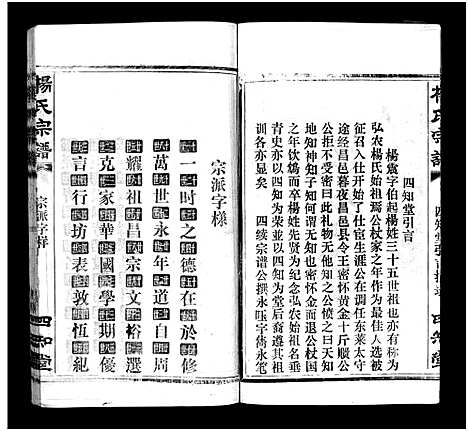 四知堂引言
楊震字伯起楊姓三十五世祖也亦有称为
弘农楊氏始祖焉公杖家之年作为最佳人选被
征召入仕开始了仕宦生涯公在调往东莱太守
途经昌邑暮夜昌邑县令王密怀黄金十斤贈公
並曰天色已黑此礼物无他知之公曰天知
地知神知子知何谓无知密怀金而退公杖国
之年饮鸩而卒楊姓先贤为纪念弘农始祖名垂
青史亦为四知为荣並以四知为堂亦安后裔清
训各亦显矣　四续宗谱公撰永
楊氏宗譜
四知堂
宗派字樣
一時之德在於修
萬世永年道自周
耀祖昌宗文裕選
克家華國學期優
言行坊表敦恆紀
楊氏宗譜
宗派字样
四知堂